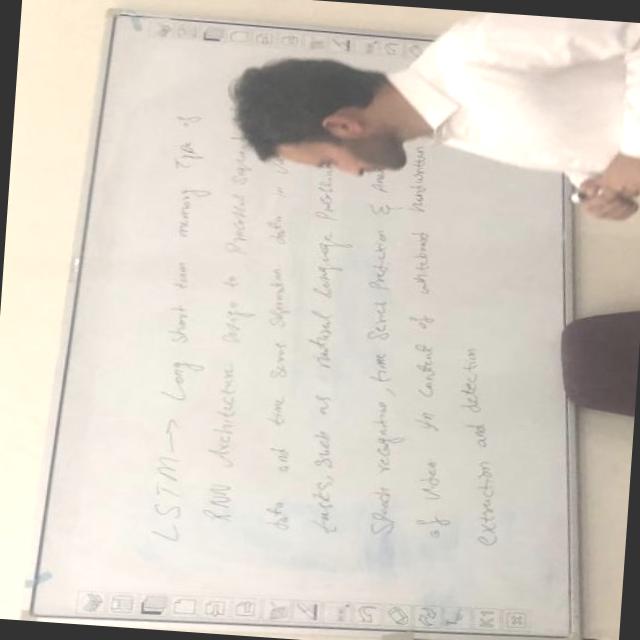 LSTM → Long short term memory Type of
RNN Architecture Design to Processed Sequen
data and time serise Sepration data in
tasks, such as natural Language Processin
Speech recognition, time Series Prediction & Ana
of Video in content of whiteboard handwritten
extraction and detection